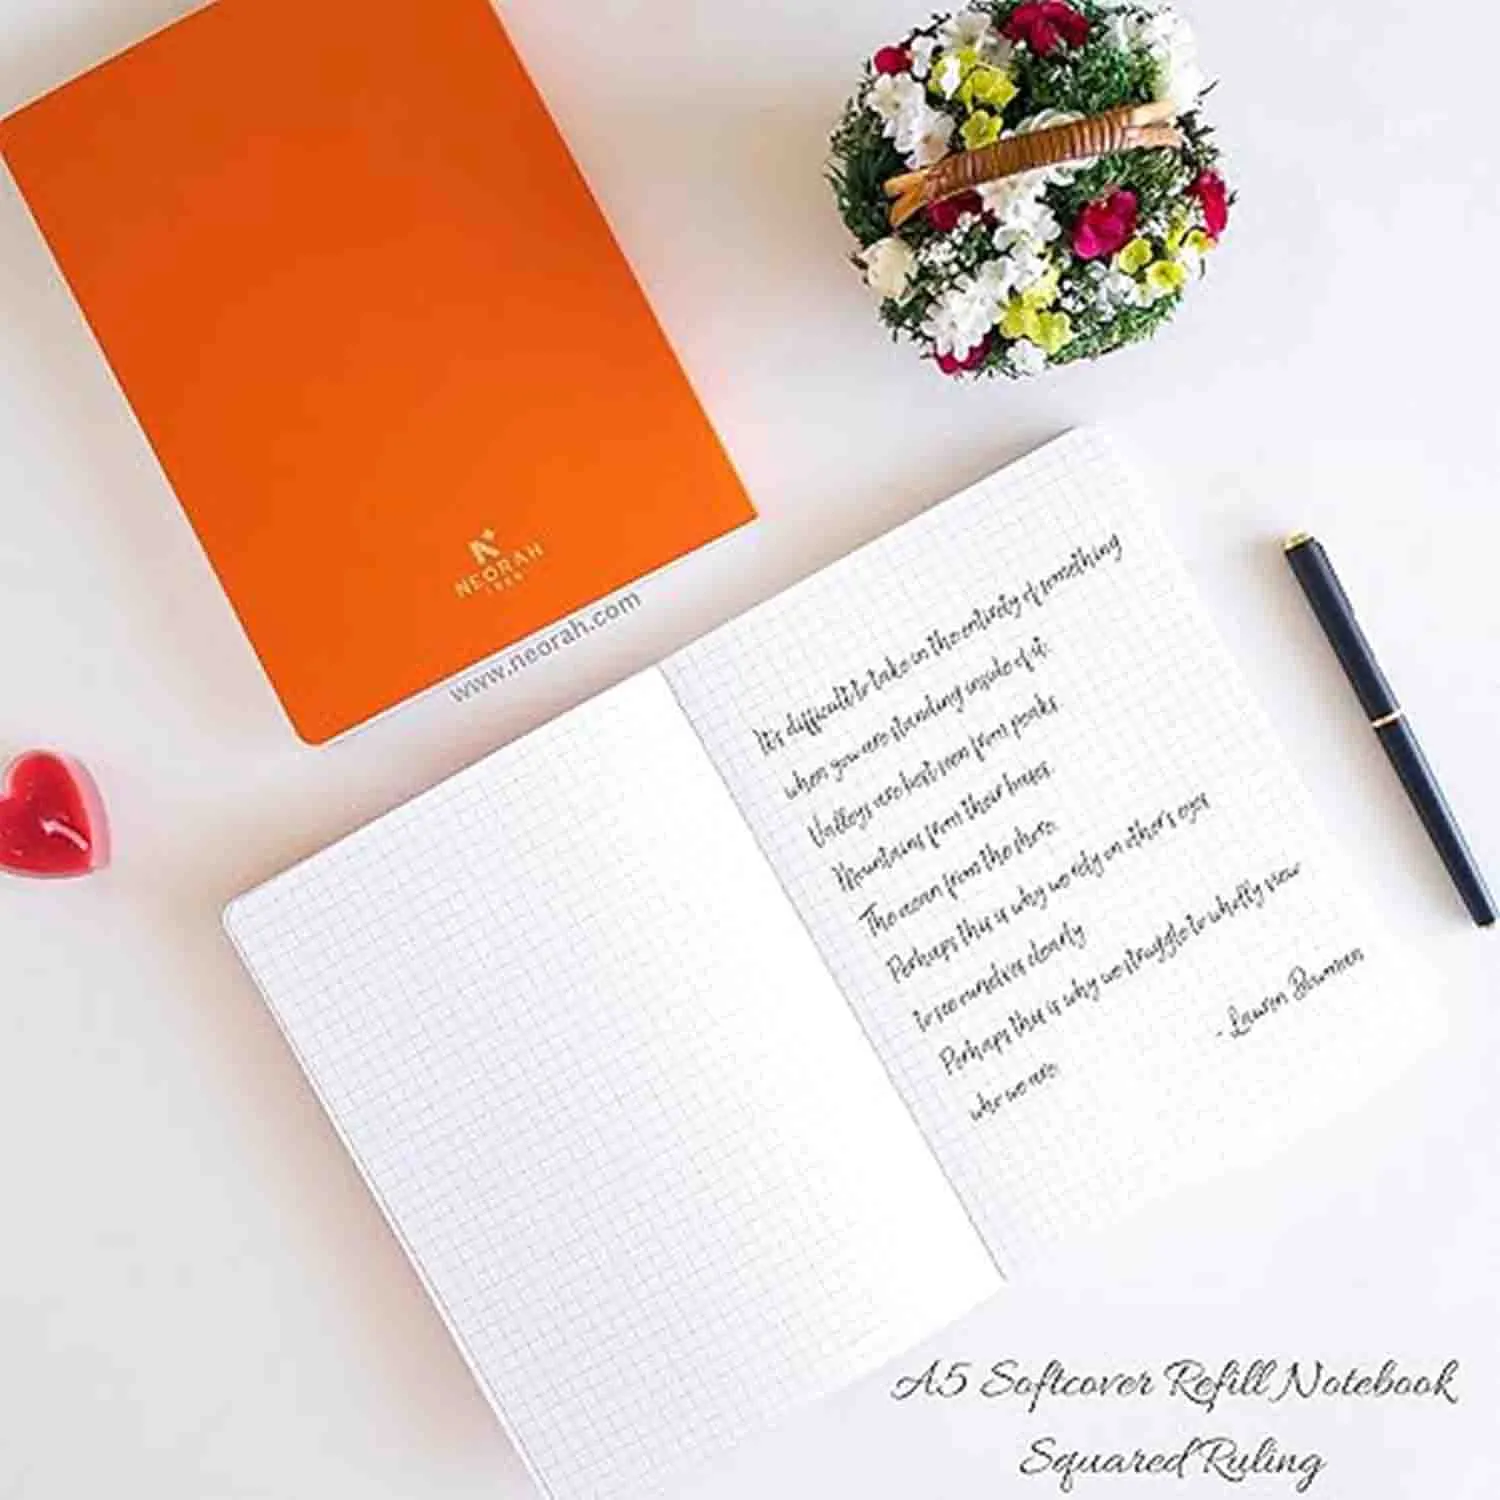 N
NEORAH
www.neorah.com
It's difficult to take in the entirety of something
when you are standing inside of it.
Valleys are best seen from peaks
Mountains from their bases.
The ocean from the shore.
Perhaps this is why we rely on other's eyes
to see ourselves clearly
Perhaps this is why we struggle to wholly view
who we are.
- Lauren Bowman
A5 Softcover Refill Notebook
Squared Ruling